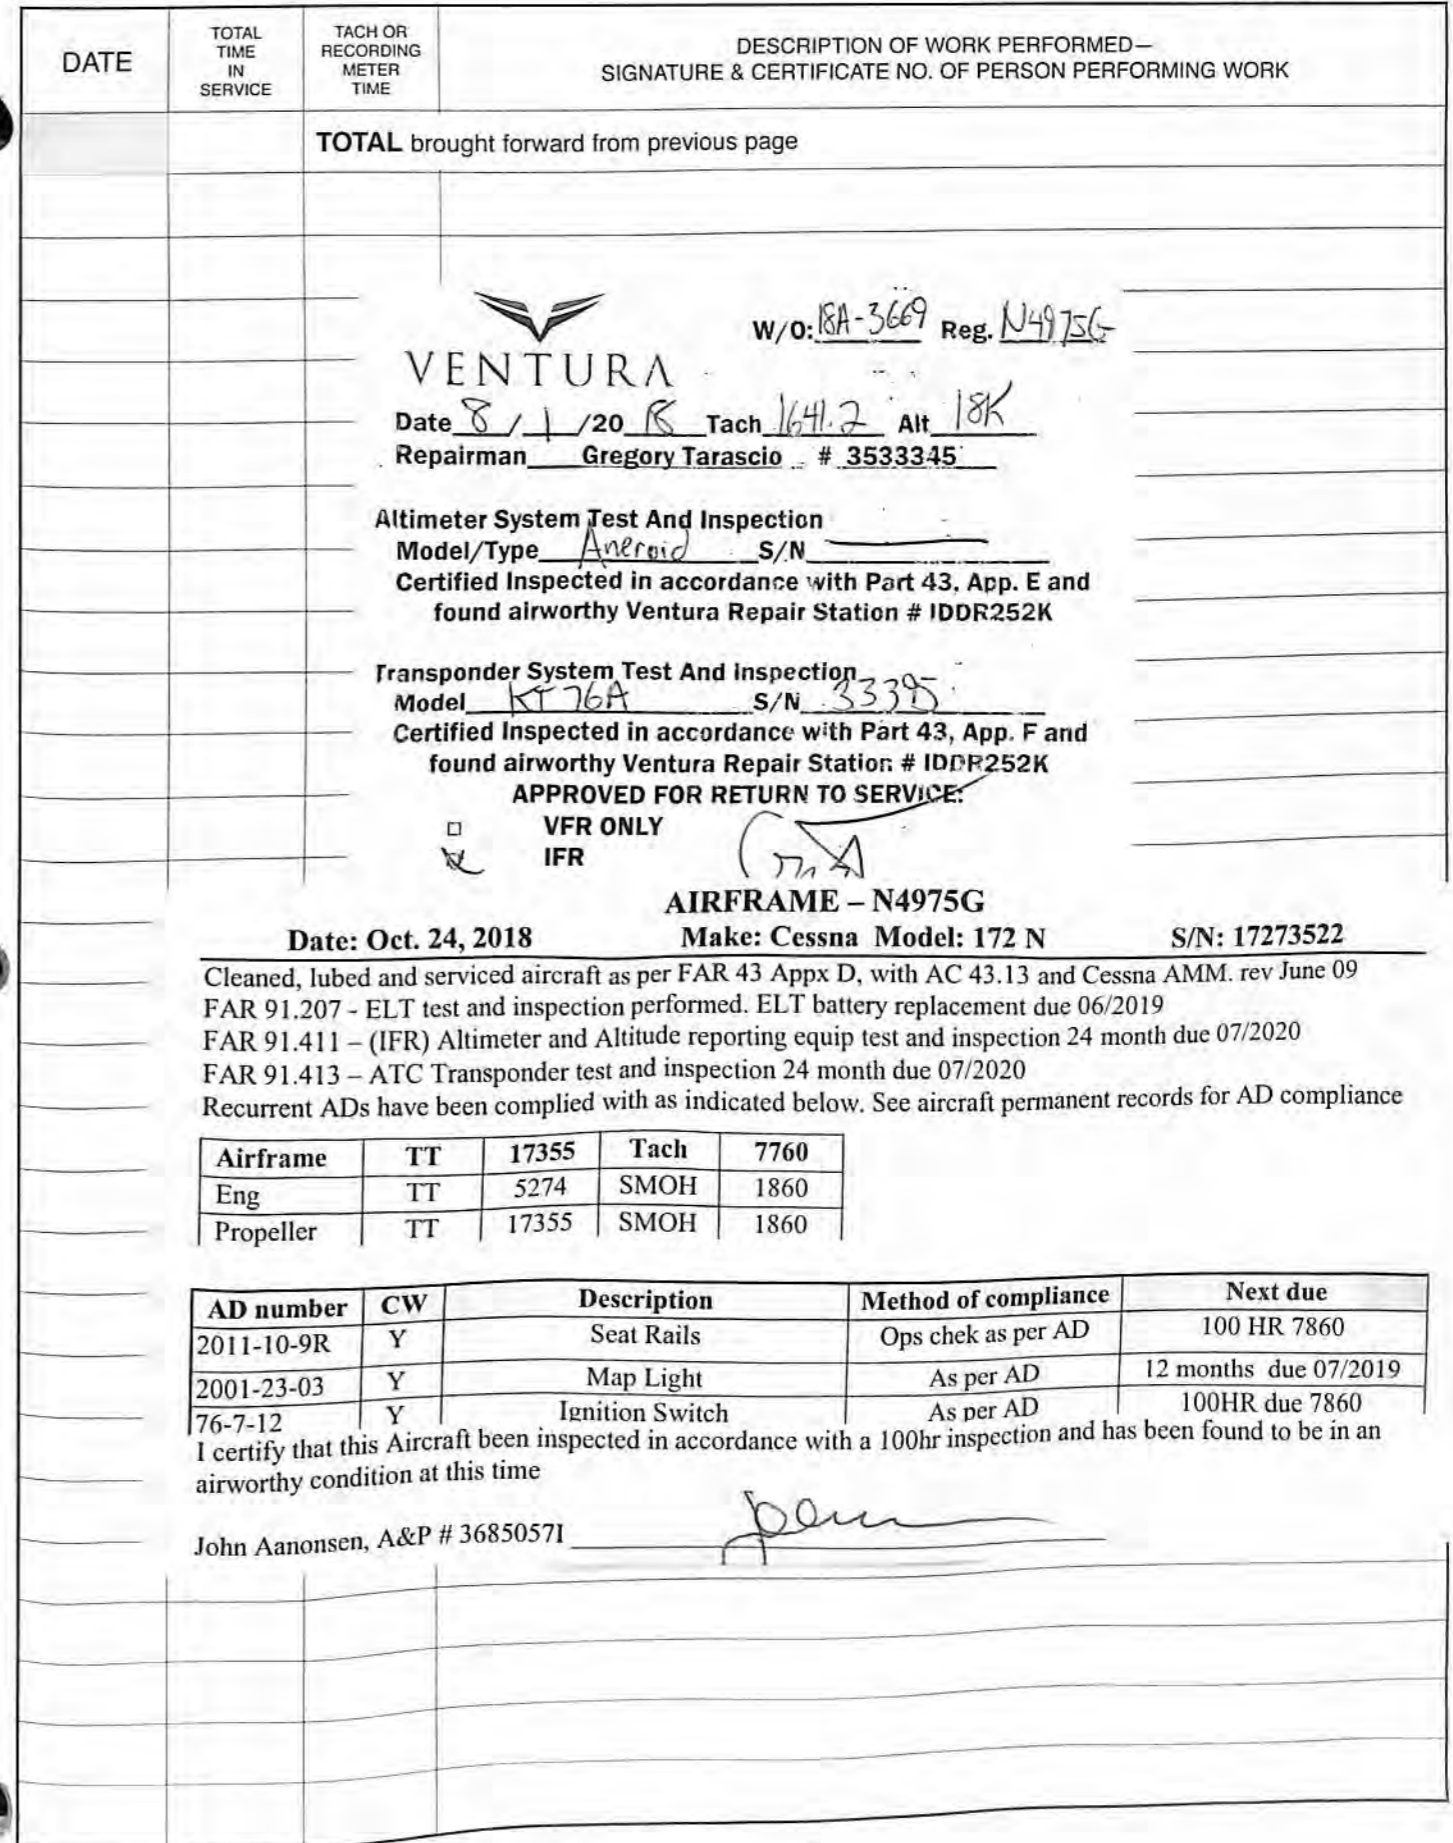 DATE
TOTAL TIME IN SERVICE
TACH OR RECORDING METER TIME
DESCRIPTION OF WORK PERFORMED—
SIGNATURE & CERTIFICATE NO. OF PERSON PERFORMING WORK
TOTAL brought forward from previous page
W/O: 18A-3669 Reg. N4975G
VENTURA
Date 8 / 1 /20 18 Tach 1641.2 Alt 18K
Repairman Gregory Tarascio # 3533345
Altimeter System Test And Inspection
Model/Type Aneroid S/N
Certified Inspected in accordance with Part 43, App. E and
found airworthy Ventura Repair Station # IDDR252K
Transponder System Test And Inspection
Model KT 76A S/N 33395
Certified Inspected in accordance with Part 43, App. F and
found airworthy Ventura Repair Station # IDDR252K
APPROVED FOR RETURN TO SERVICE:
VFR ONLY
IFR
AIRFRAME – N4975G
Date: Oct. 24, 2018 Make: Cessna Model: 172 N S/N: 17273522
Cleaned, lubed and serviced aircraft as per FAR 43 Appx D, with AC 43.13 and Cessna AMM. rev June 09
FAR 91.207 - ELT test and inspection performed. ELT battery replacement due 06/2019
FAR 91.411 – (IFR) Altimeter and Altitude reporting equip test and inspection 24 month due 07/2020
FAR 91.413 – ATC Transponder test and inspection 24 month due 07/2020
Recurrent ADs have been complied with as indicated below. See aircraft permanent records for AD compliance
Airframe TT 17355 Tach 7760
Eng TT 5274 SMOH 1860
Propeller TT 17355 SMOH 1860
AD number CW Description Method of compliance Next due
2011-10-9R Y Seat Rails Ops chek as per AD 100 HR 7860
2001-23-03 Y Map Light As per AD 12 months due 07/2019
76-7-12 Y Ignition Switch As per AD 100HR due 7860
I certify that this Aircraft been inspected in accordance with a 100hr inspection and has been found to be in an
airworthy condition at this time
John Aanonsen, A&P # 3685057I